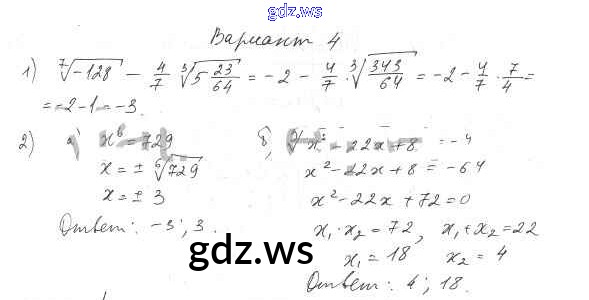 gdz.ws
Вариант 4
1) ⁷√-128 - 4/7 · ³√(5 23/64) = -2 - 4/7 · ³√(343/64) = -2 - 4/7 · 7/4 =
= -2-1 = -3.
2) а) x⁶ = 729
x = ± ⁶√729
x = ± 3
Ответ: -3; 3.
б) ³√(x² - 22x + 8) = -4
x² - 22x + 8 = -64
x² - 22x + 72 = 0
x₁ · x₂ = 72, x₁ + x₂ = 22
x₁ = 18 x₂ = 4
Ответ: 4; 18.
gdz.ws